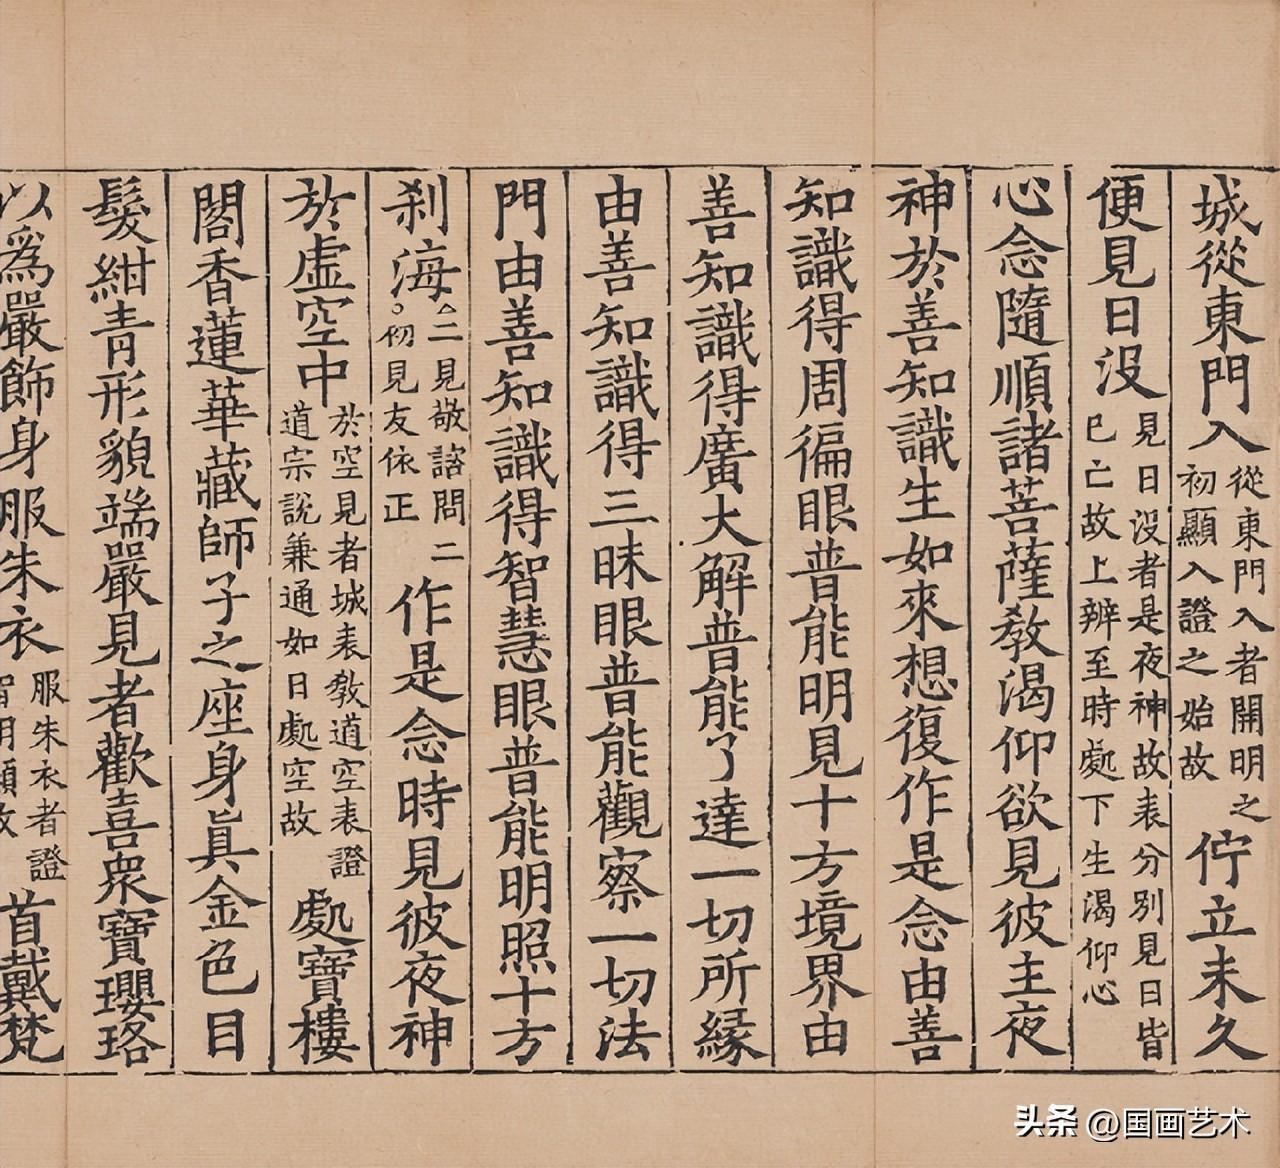 城從東門入從東門入者開明之初顯入證之始故佇立未久
便見日没見日没者是夜神故表分別見日皆已亡故上辨至時處下生渴仰心
心念隨順諸菩薩教渴仰欲見彼主夜
神於善知識生如來想復作是念由善
知識得周徧眼普能明見十方境界由
善知識得廣大解普能了達一切所緣
由善知識得三昧眼普能觀察一切法
門由善知識得智慧眼普能明照十方
刹海二見敬諮問二初見友依正作是念時見彼夜神
於虛空中於空見者城表教道空表證道宗說兼通如日處空故處寶樓
閣香蓮華藏師子之座身真金色目
髮紺青形貌端嚴見者歡喜眾寶瓔珞
以爲嚴飾身服朱衣服朱衣者證首戴梵
头条 @国画艺术